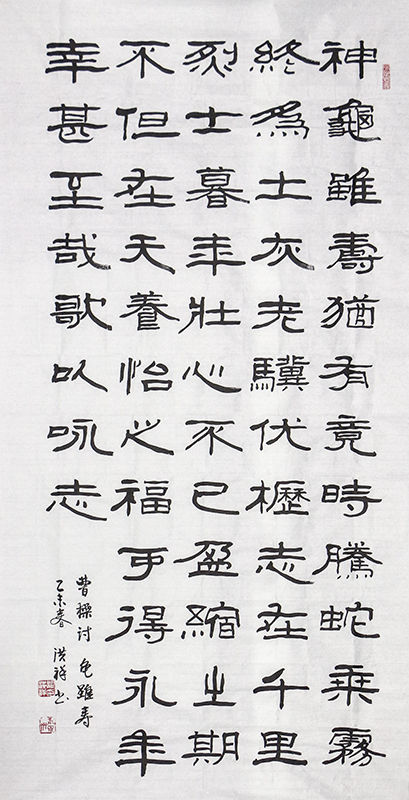 神龜雖壽猶有竟時騰蛇乘霧
終為土灰老驥伏櫪志在千里
烈士暮年壯心不已盈縮之期
不但在天養怡之福可得永年
幸甚至哉歌以咏志
曹操诗龟雖寿
乙未春洪祥书